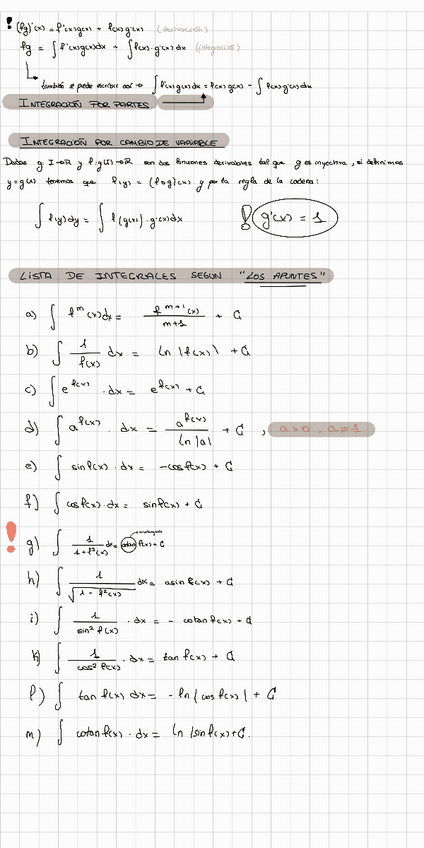 ! (fg)'(x) = f'(x)g(x) + f(x)g'(x) (derivación)
fg = ∫ f'(x)g(x)dx + ∫ f(x)·g'(x)dx (integración)
también se puede escribir así → ∫ f'(x)g(x)dx = f(x)g(x) - ∫ f(x)g'(x)dx
INTEGRACIÓN POR PARTES
INTEGRACIÓN POR CAMBIO DE VARIABLE
Dadas g: I→R y f: g(I)→R son dos funciones derivables tal que g es inyectiva, si definimos
y=g(x) tenemos que f(y) = (f∘g)(x) y por la regla de la cadena:
∫ f(y)dy = ∫ f(g(x))·g'(x)dx ! g'(x) = 1
LISTA DE INTEGRALES SEGÚN "LOS APUNTES"
a) ∫ f^m(x)dx = f^(m+1)(x) / (m+1) + C
b) ∫ 1/f(x) dx = ln |f(x)| + C
c) ∫ e^f(x) · dx = e^f(x) + C
d) ∫ a^f(x) · dx = a^f(x) / ln |a| + C , a>0, a≠1
e) ∫ sin f(x) · dx = -cos f(x) + C
f) ∫ cos f(x) · dx = sin f(x) + C
! g) ∫ 1/(1+f²(x)) dx = atan f(x) + C
h) ∫ 1/√(1-f²(x)) dx = asin f(x) + C
i) ∫ 1/sin² f(x) · dx = - cotan f(x) + C
k) ∫ 1/cos² f(x) · dx = tan f(x) + C
l) ∫ tan f(x) dx = - ln |cos f(x)| + C
m) ∫ cotan f(x) · dx = ln |sin f(x)| + C.